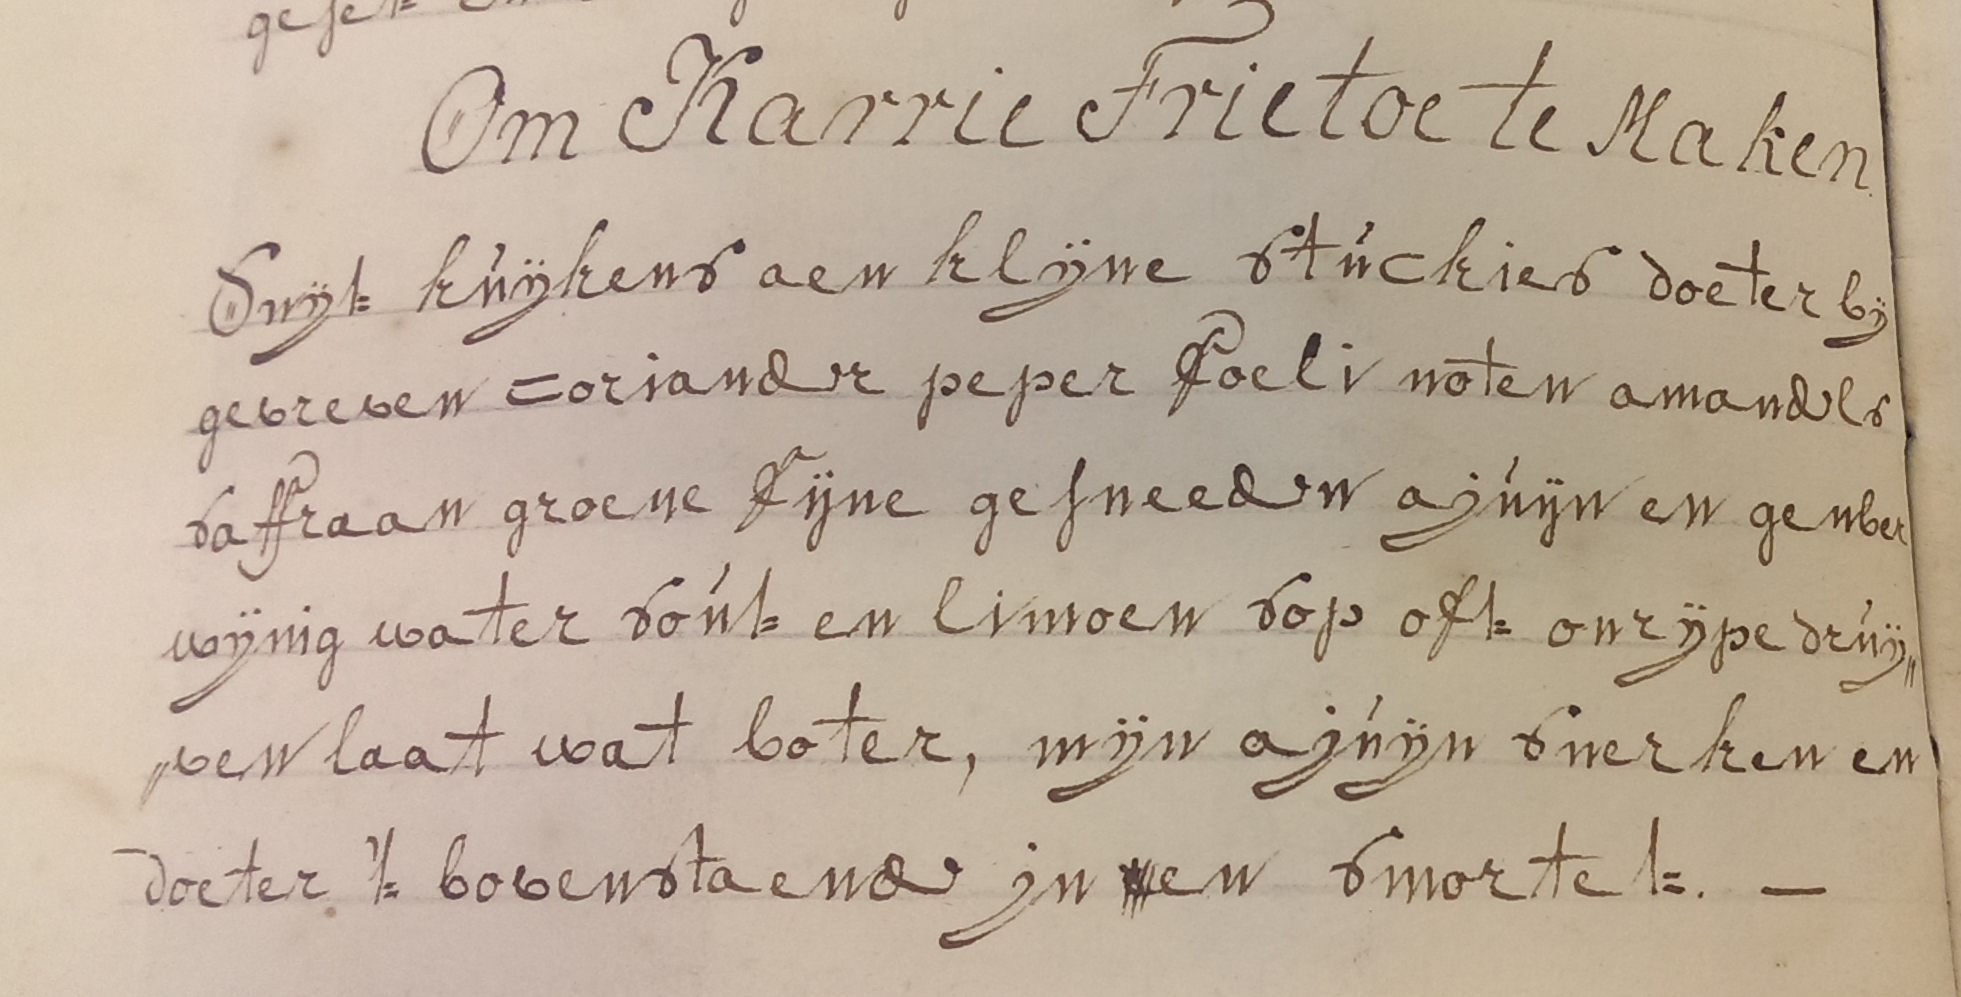 Om Karrie Frietoe te Maken
Snÿt kúÿkens aen klÿne stúckies doeter bÿ
gevreven coriander peper foeli noten amandels
saffraan groene fÿne gesneeden ajúÿn en genber
wÿnig water soút en limoen sop oft onrÿpe drúÿ„
„ven laat wat boter, mÿn ajúÿn snerken en
doeter 't bovenstaende jn en smortet. —